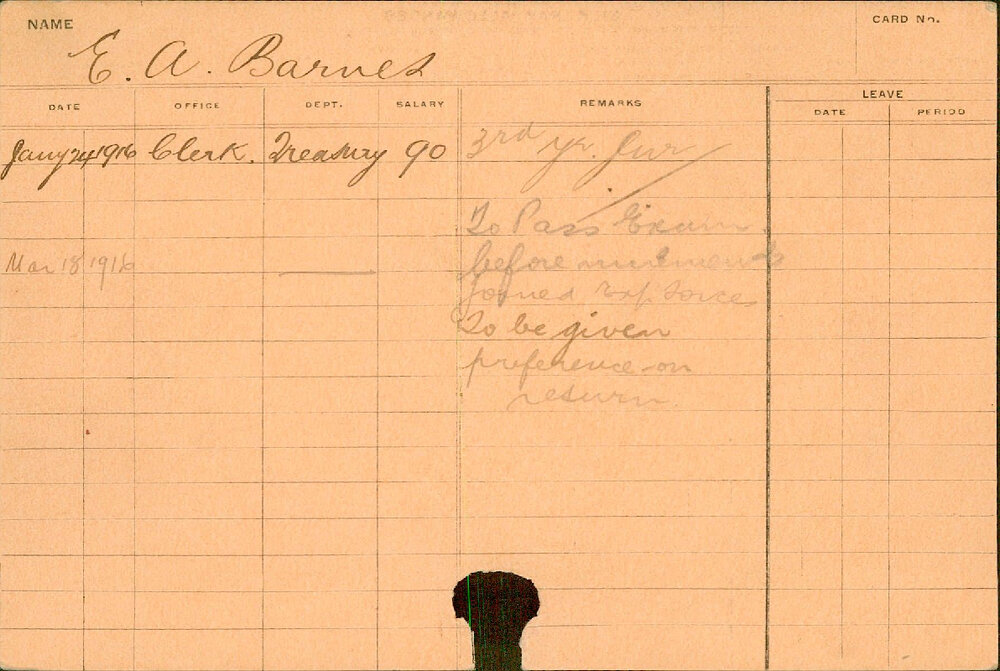 NAME
CARD No.
E. A. Barnes
DATE OFFICE DEPT. SALARY REMARKS LEAVE
DATE PERIOD
Jany 24 1916 Clerk. Treasury 90 3rd yr. Jnr
To Pass Exam.
Mar 18 1916 before increments
joined Exp. Force
To be given
preference on
return